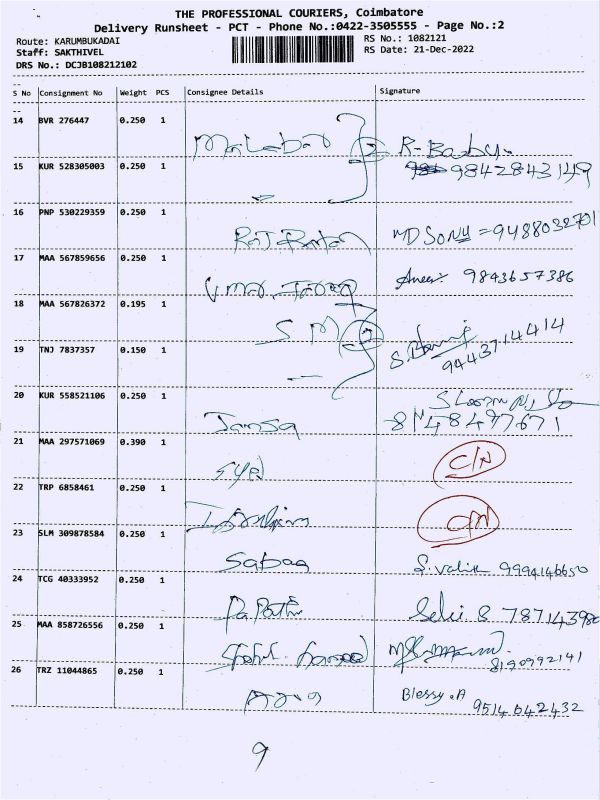 THE PROFESSIONAL COURIERS, Coimbatore
Delivery Runsheet - PCT - Phone No.:0422-3505555 - Page No.:2
Route: KARUMBUKADAI
RS No.: 1082121
Staff: SAKTHIVEL
RS Date: 21-Dec-2022
DRS No.: DCJB108212102
--
S No Consignment No Weight PCS Consignee Details Signature
--
14 BVR 276447 0.250 1
Malabar 2 R-Babu
15 KUR 528305003 0.250 1 9842843149
16 PNP 530229359 0.250 1
MD SONU = 9488032701
17 MAA 567859656 0.250 1
Umar 9843657386
18 MAA 567826372 0.195 1
S M 2
19 TNJ 7837357 0.150 1 9443714414
20 KUR 558521106 0.250 1
Jansa 8148497671
21 MAA 297571069 0.390 1
C/N
22 TRP 6858461 0.250 1
C/N
23 SLM 309878584 0.250 1
Sabaa S. Valin 9994146650
24 TCG 40333952 0.250 1
Selvi 8
25 MAA 858726556 0.250 1
8190992141
26 TRZ 11044865 0.250 1
Blessy.A
9514642432
9